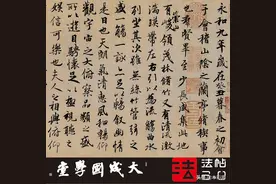 永和九年歲在癸丑暮春之初會
于會稽山陰之蘭亭脩禊事
也羣賢畢至少長咸集此地
有崇山峻領茂林脩竹又有清流激
湍暎帶左右引以為流觴曲水
列坐其次雖無絲竹管弦之
盛一觴一詠亦足以暢敘幽情
是日也天朗氣清惠風和暢仰
觀宇宙之大俯察品類之盛
所以遊目騁懷足以極視聽之
娛信可樂也夫人之相與俯仰
大成國學堂
法
法帖